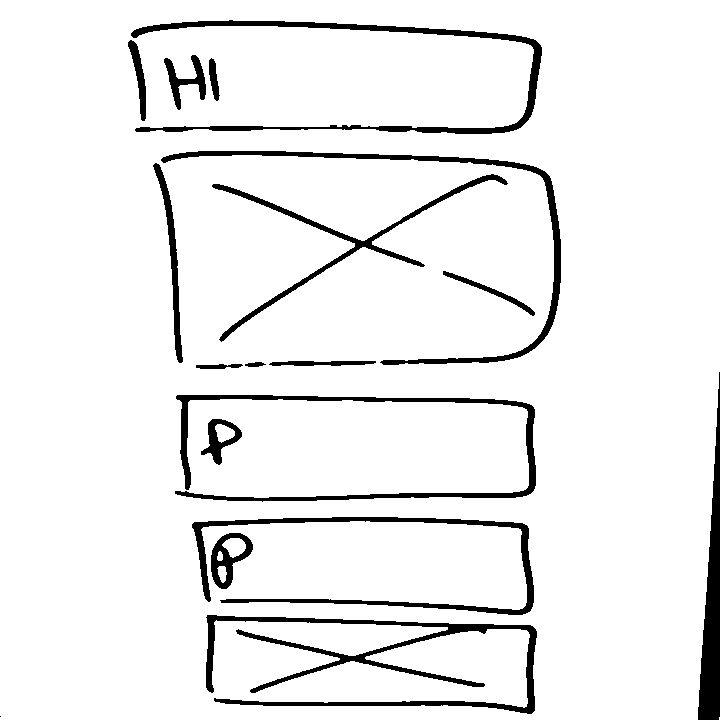 H1
P
P